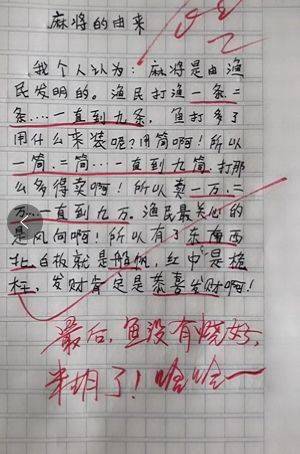 麻将的由来
我个人认为：麻将是由渔
民发明的。渔民打渔一条二
条……一直到九条，鱼打多了
用什么来装呢？用筒啊！所以
一筒.二筒……一直到九筒.打那
么多得卖啊！所以卖一万.二
万……一直到九万。渔民最关心的
是风向啊！所以有了东南西
北.白板就是船帆，红中是桅
杆，发财肯定是恭喜发财啊！
最后，鱼没有烧好，
糊了！哈哈～